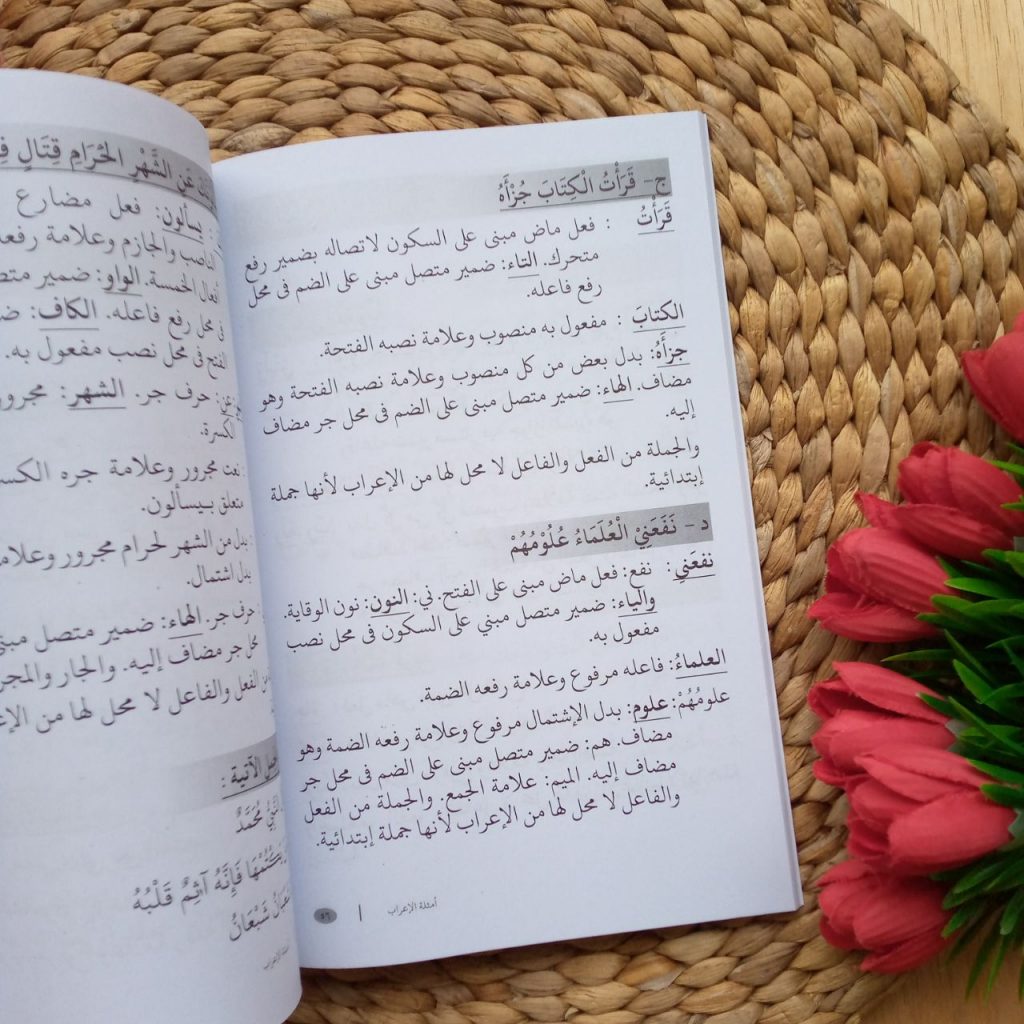 ج- قَرَأْتُ الْكِتَابَ جُزْأَهُ
قَرَأْتُ : فعل ماض مبنى على السكون لاتصاله بضمير رفع
متحرك. التاء: ضمير متصل مبنى على الضم فى محل
رفع فاعله.
الكتابَ : مفعول به منصوب وعلامة نصبه الفتحة.
جزأَهُ: بدل بعض من كل منصوب وعلامة نصبه الفتحة وهو
مضاف. الهاء: ضمير متصل مبنى على الضم فى محل جر مضاف
إليه.
والجملة من الفعل والفاعل لا محل لها من الإعراب لأنها جملة
إبتدائية.
د- نَفَعَنِيْ الْعُلَمَاءُ عُلُوْمُهُمْ
نفعَني : نفع: فعل ماض مبنى على الفتح. ني: النون: نون الوقاية.
والياء: ضمير متصل مبني على السكون فى محل نصب
مفعول به.
العلماءُ: فاعله مرفوع وعلامة رفعه الضمة.
علومُهُمْ: علوم: بدل الإشتمال مرفوع وعلامة رفعه الضمة وهو
مضاف. هم: ضمير متصل مبنى على الضم فى محل جر
مضاف إليه. الميم: علامة الجمع. والجملة من الفعل
والفاعل لا محل لها من الإعراب لأنها جملة إبتدائية.
أمثلة الإعراب | ٥٦
عَنِ الشَّهْرِ الْحَرَامِ قِتَالٍ
يسألون: فعل مضارع
والجازم وعلامة رفعه
الخمسة. الواو: ضمير
فى محل رفع فاعله. الكاف:
الفتح فى محل نصب مفعول به.
عن: حرف جر. الشهر: مجرور
الكسرة.
نعت مجرور وعلامة جره
متعلق بيسألون.
بدل من الشهر لحرام مجرور
بدل اشتمال.
حرف جر. الهاء: ضمير متصل
محل جر مضاف إليه. والجار
الفعل والفاعل لا محل لها من
الآتية :
مُحَمَّدٌ
فَإِنَّهُ آثِمٌ قَلْبُهُ
شَبْعَانُ
الإعراب